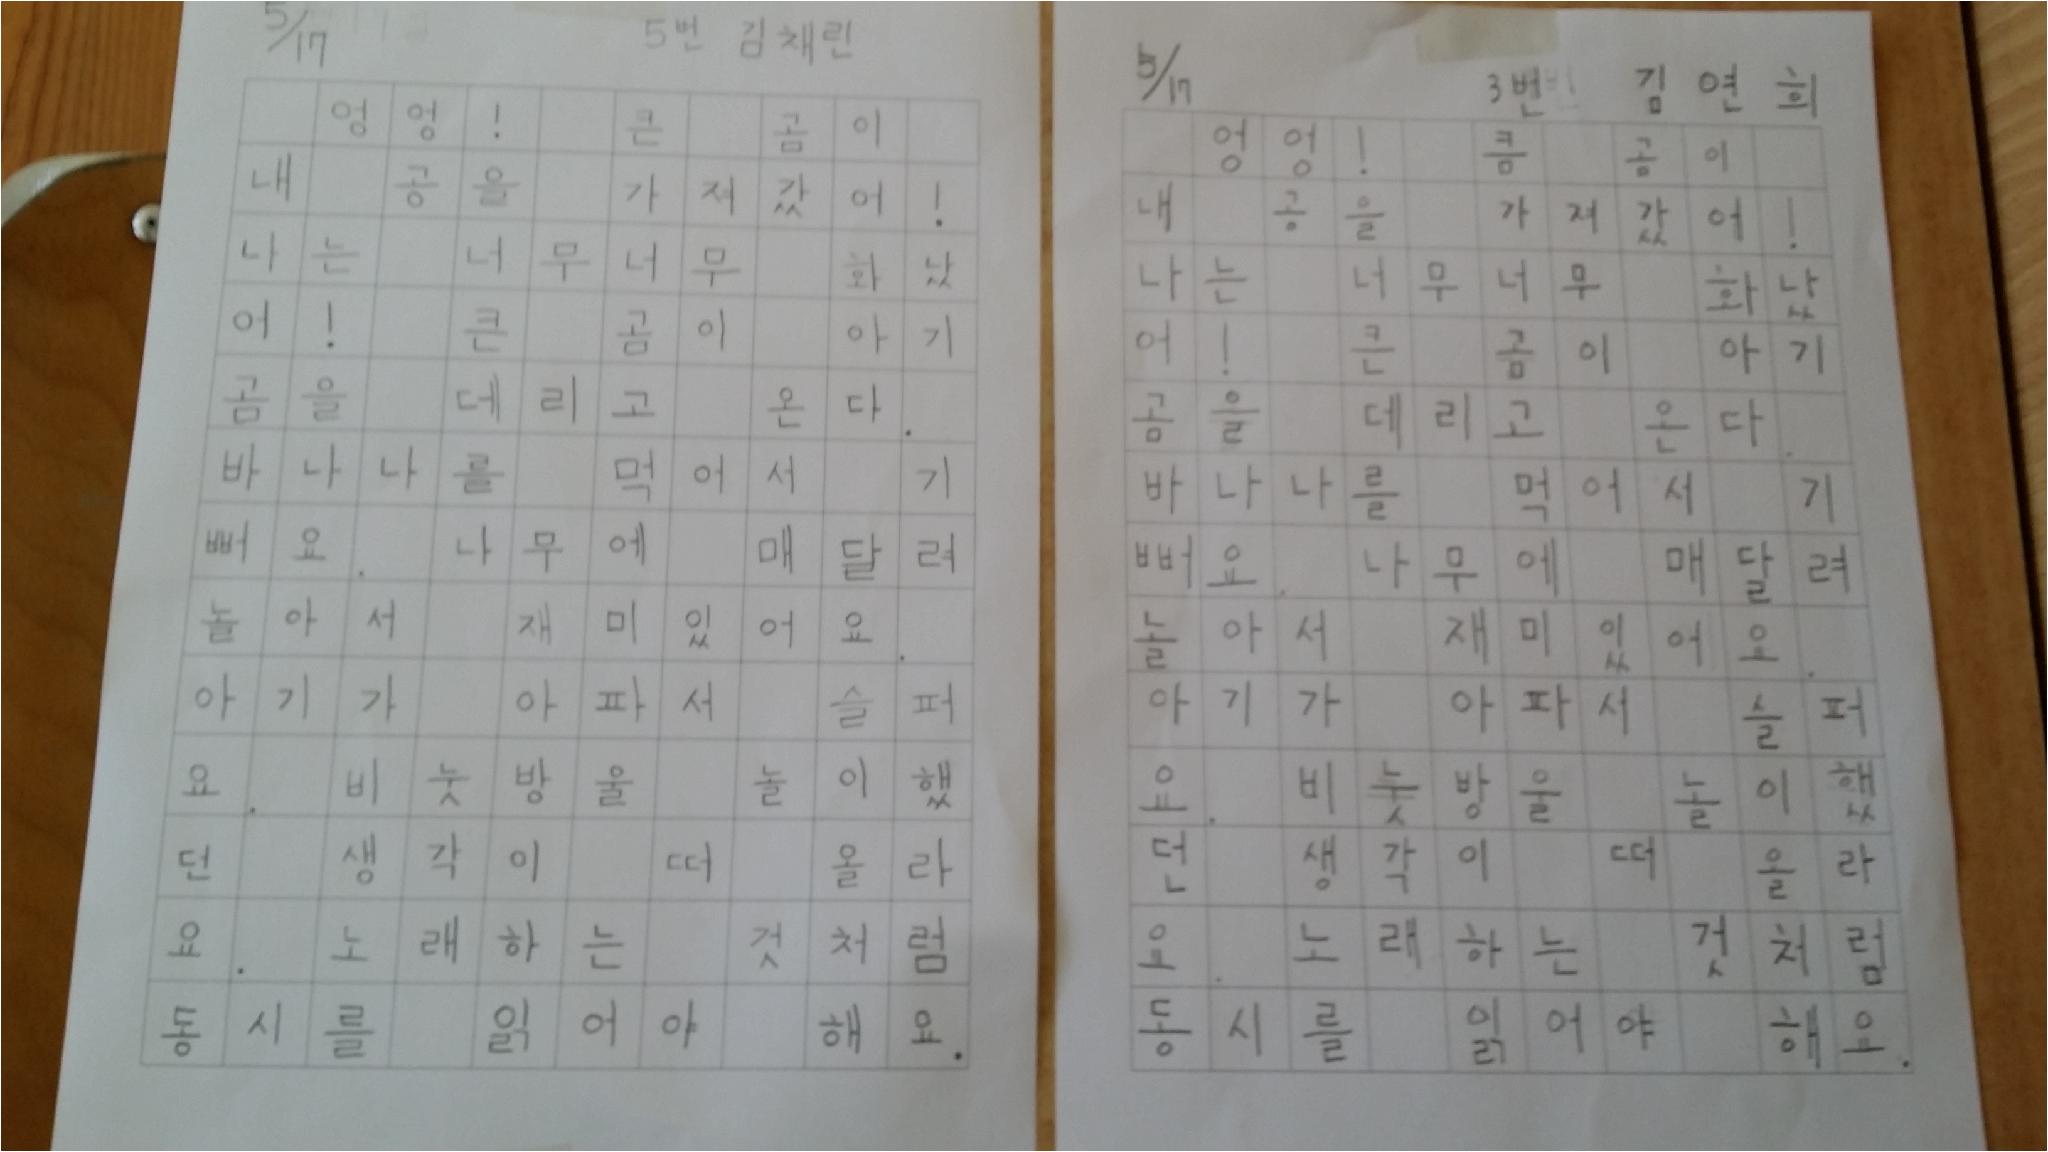 5/17 5번 김채린
엉엉! 큰 곰이
내 공을 가져갔어!
나는 너무너무 화났
어! 큰 곰이 아기
곰을 데리고 온다.
바나나를 먹어서 기
뻐요. 나무에 매달려
놀아서 재미있어요.
아기가 아파서 슬퍼
요. 비눗방울 놀이했
던 생각이 떠 올라
요. 노래하는 것처럼
동시를 읽어야 해요.
5/17 3번 김연희
엉엉! 큼 곰이
내 공을 가져갔어!
나는 너무너무 화났
어! 큰 곰이 아기
곰을 데리고 온다.
바나나를 먹어서 기
뻐요. 나무에 매달려
놀아서 재미있어요.
아기가 아파서 슬퍼
요. 비눗방울 놀이했
던 생각이 떠 올라
요. 노래하는 것처럼
동시를 읽어야 해요.